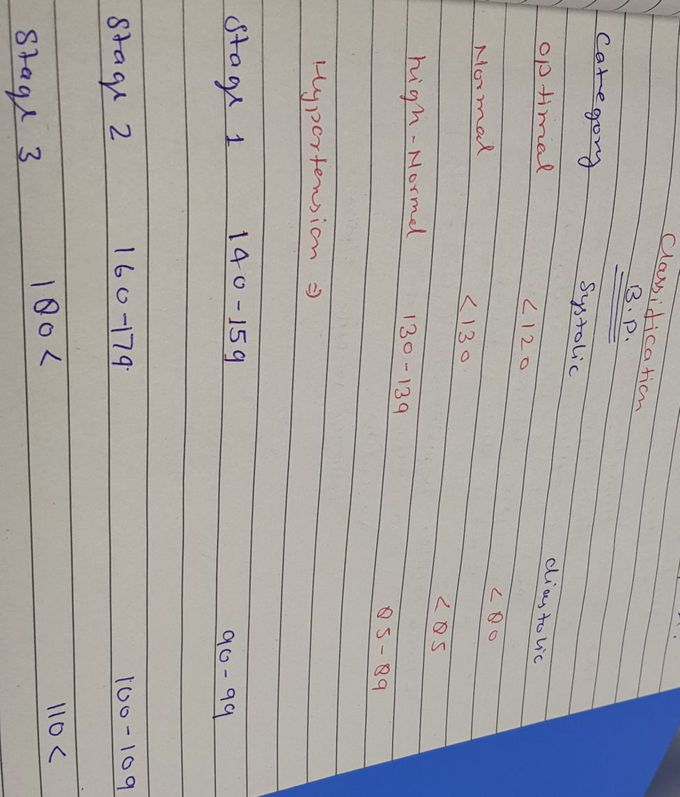 Classification
B.P.
Category Systolic diastolic
optimal <120 <80
Normal <130 <85
high-Normal 130-139 85-89
Hypertension ⇒
Stage 1 140-159 90-99
Stage 2 160-179 100-109
Stage 3 180< 110<